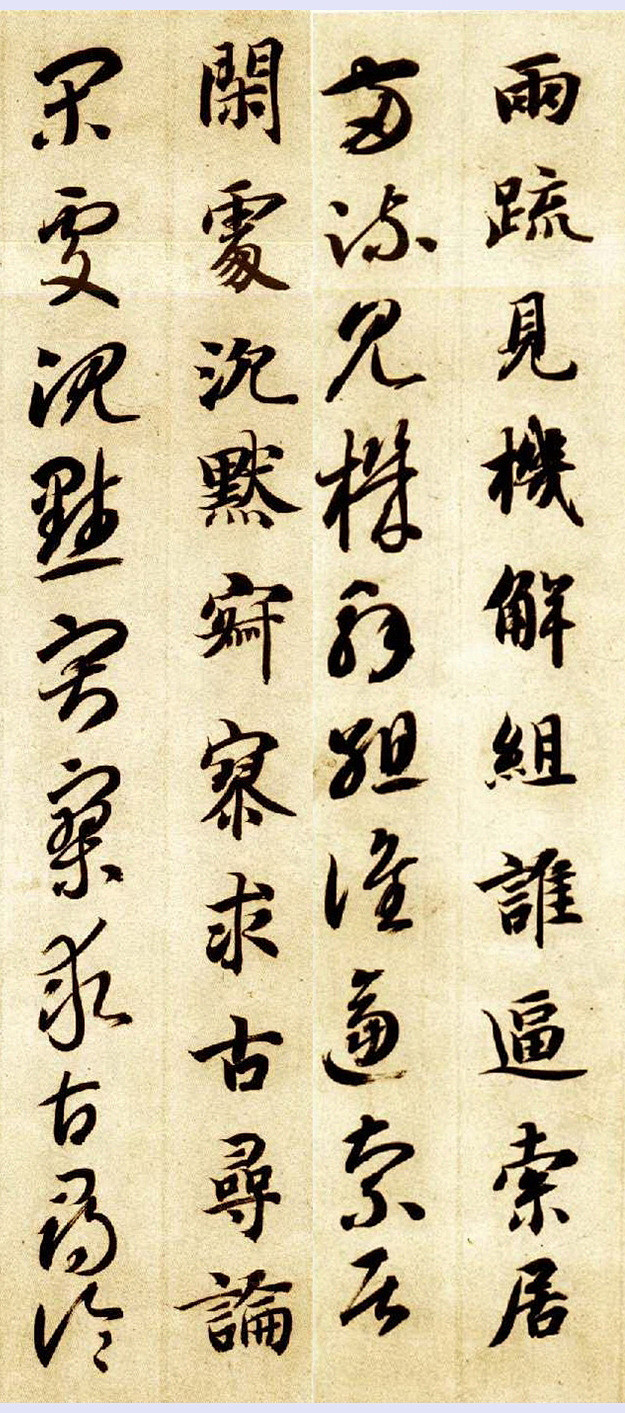 兩疏見機解組誰逼索居
兩疏見機解組誰逼索居
閑處沉默寂寥求古尋論
閑處沉默寂寥求古尋論